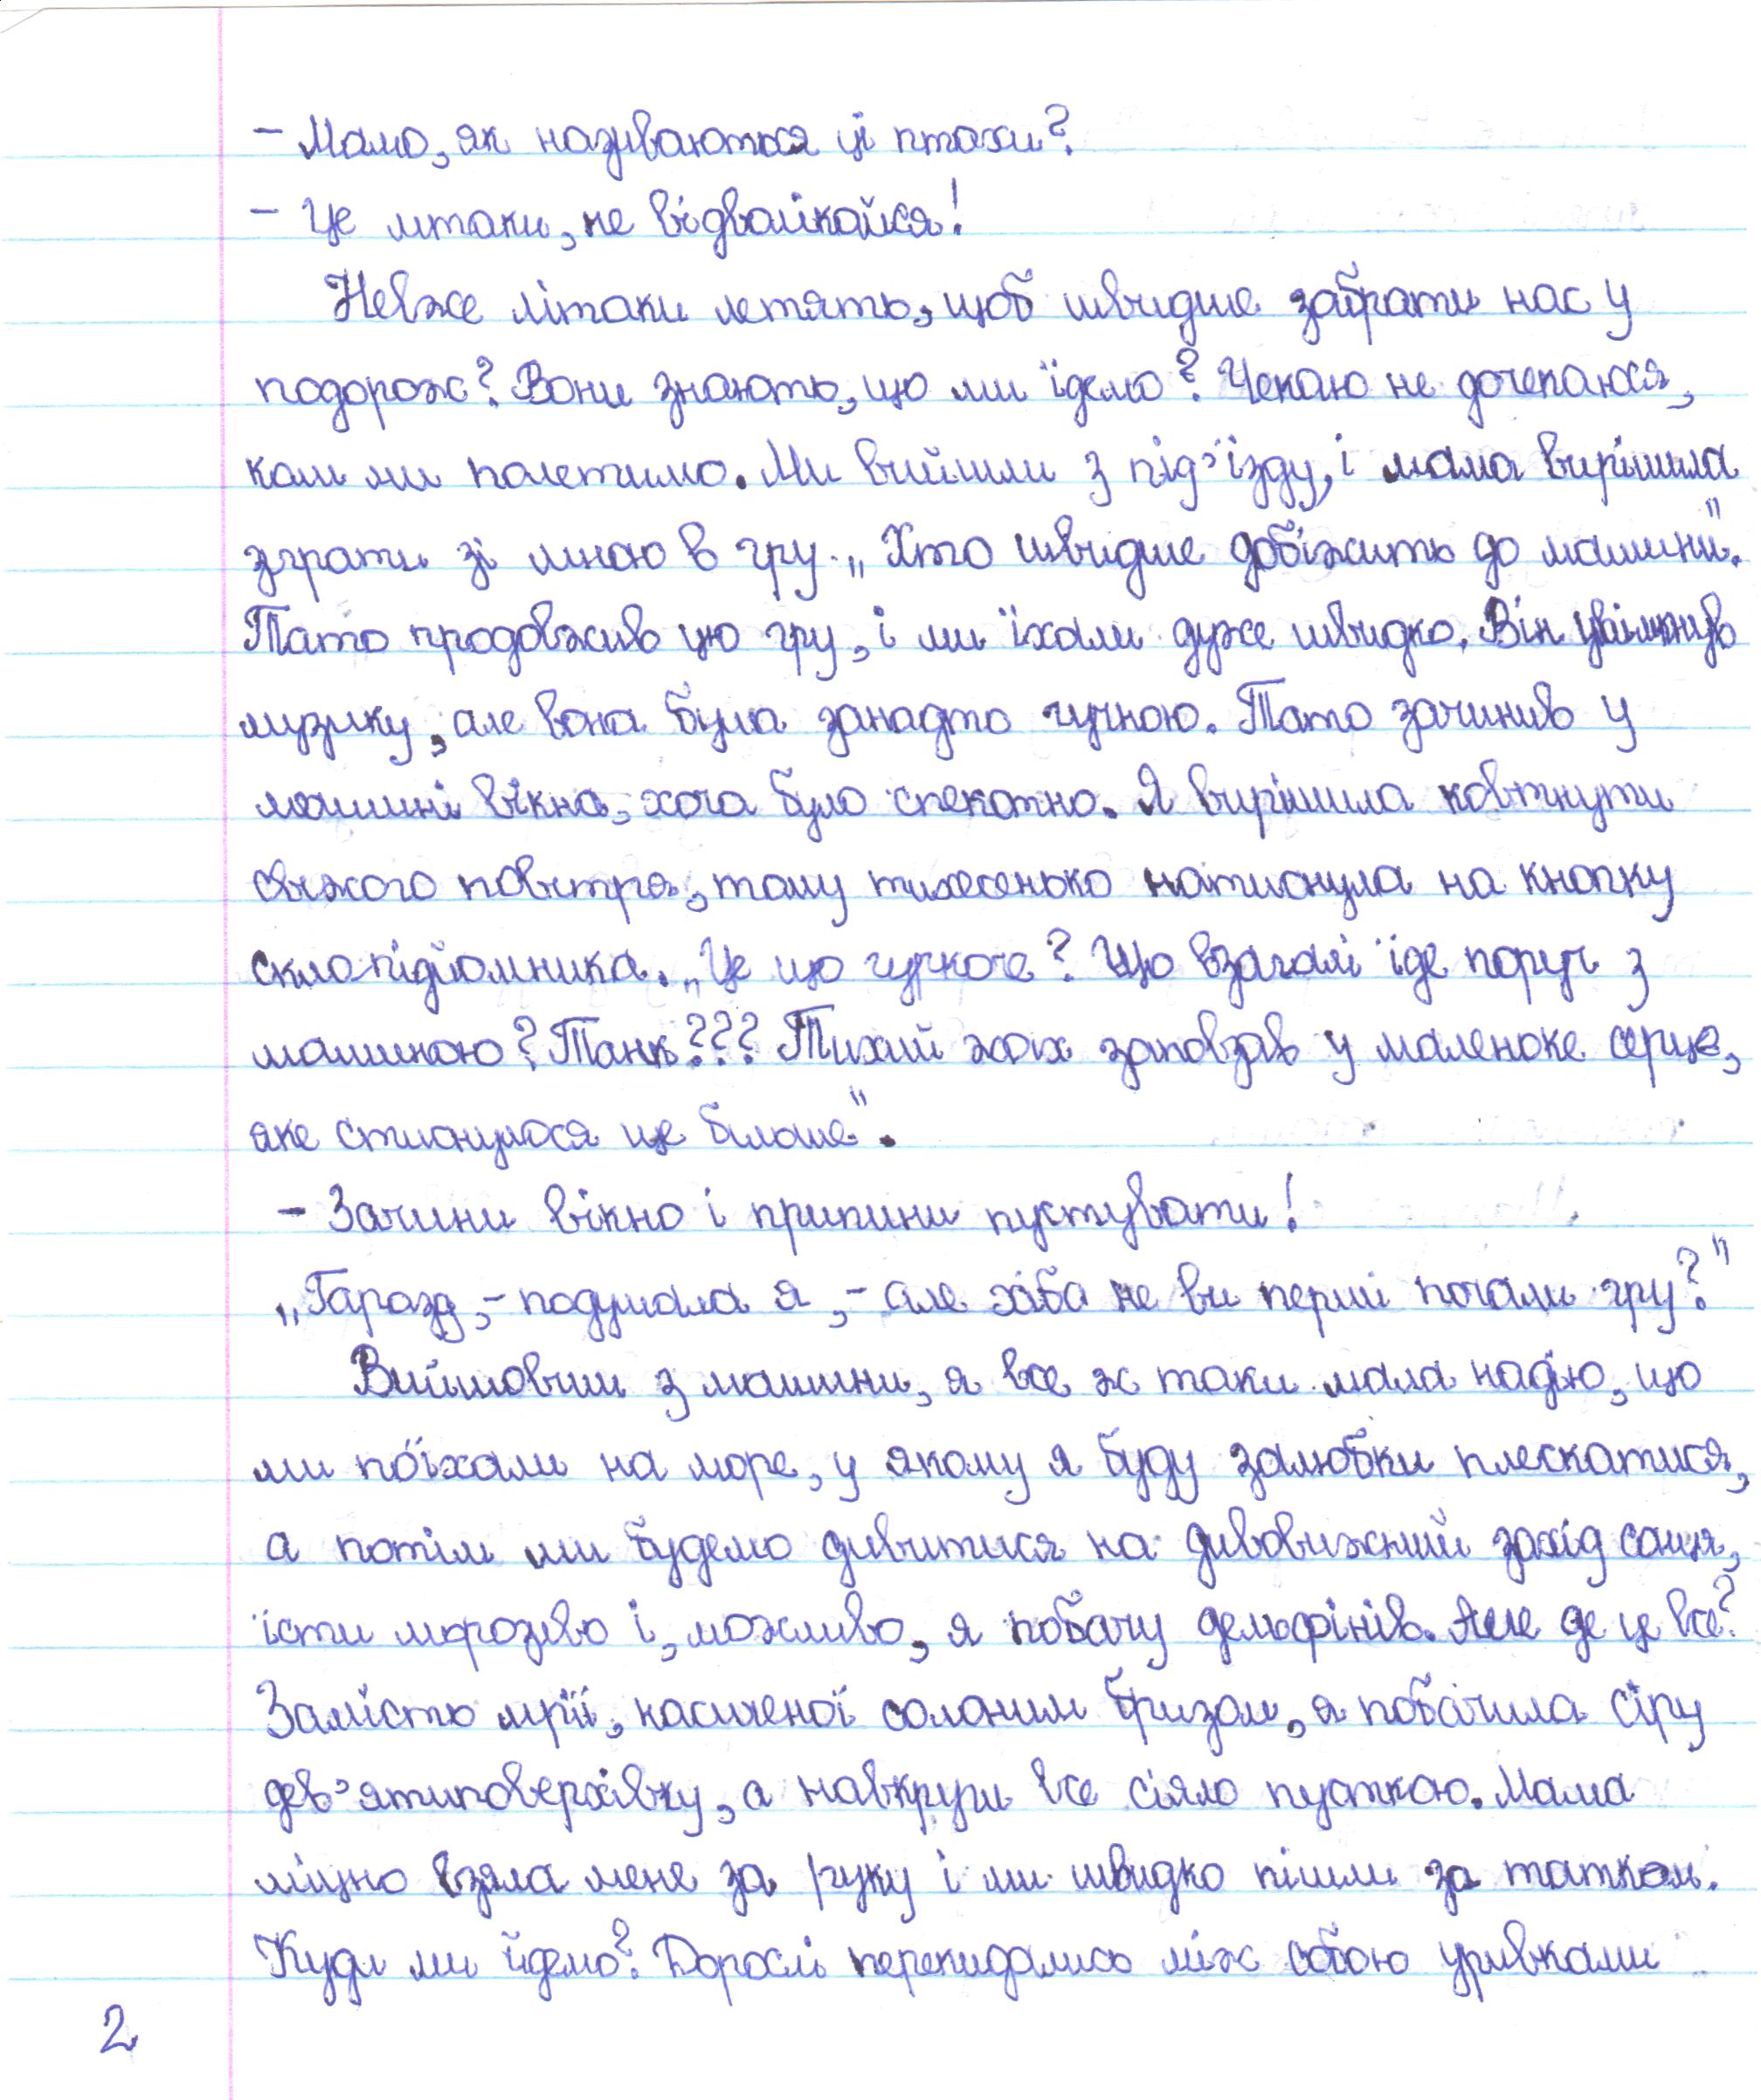 – Мамо, як називаються ці птахи?
– Це літаки, не відволікайся!
Невже літаки летять, щоб швидше забрати нас у
подорож? Вони знають, що ми їдемо? Чекаю не дочекаюся,
коли ми полетимо. Ми вийшли з під'їзду, і мама вирішила
зіграти зі мною в гру „Хто швидше добіжить до машини".
Тато продовжив цю гру, і ми їхали дуже швидко. Він увімкнув
музику, але вона була занадто гучною. Тато зачинив у
машині вікна, хоча було спекотно. Я вирішила ковтнути
свіжого повітря, тому тихесенько натиснула на кнопку
склопідйомника. „Це що гуркоче? Що взагалі їде поруч з
машиною? Танк??? Тихий жах заповзав у маленьке серце,
яке стиснулося ще більше".
– Зачини вікно і припини пустувати!
„Гаразд, – подумала я, – але хіба не ви перші почали гру?"
Вийшовши з машини, я все ж таки мала надію, що
ми поїхали на море, у якому я буду залюбки плескатися,
а потім ми будемо дивитися на дивовижний захід сонця,
їсти морозиво і, можливо, я побачу дельфінів. Але де це все?
Замість мрії, насиченої солоним бризом, я побачила сіру
дев'ятиповерхівку, а навкруги все сіяло пусткою. Мама
міцно взяла мене за руку і ми швидко пішли за татком.
Куди ми йдемо? Дорослі перекидались між собою уривками
2